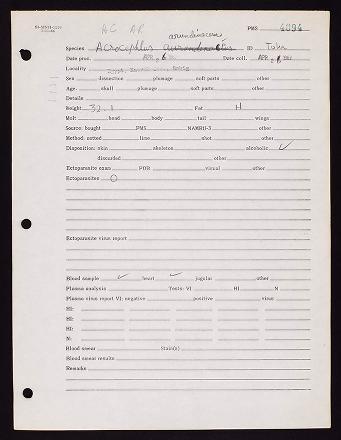 AC AR
arundinaceus
PMS 4094
Species Acrocephalus ID Toha
Date proc. APR 6 Date coll. APR 6
Locality
Sex dissection plumage soft parts other
Age. skull plumage soft parts other
Details
Weight 32.1 Fat H
Molt head body tail wings
Source: bought PMS NAMRU-2 other
Method: netted line shot other
Disposition: skin skeleton alcoholic ✓
discarded other
Ectoparasite exam FOR visual other
Ectoparasites 0
Ectoparasite virus report
Blood sample ✓ heart ✓ jugular other
Plasma analysis Tests: VI HI N
Plasma virus report VI: negative positive virus
HI:
HI:
HI:
N:
Blood smear Stain(s)
Blood smear results
Remarks